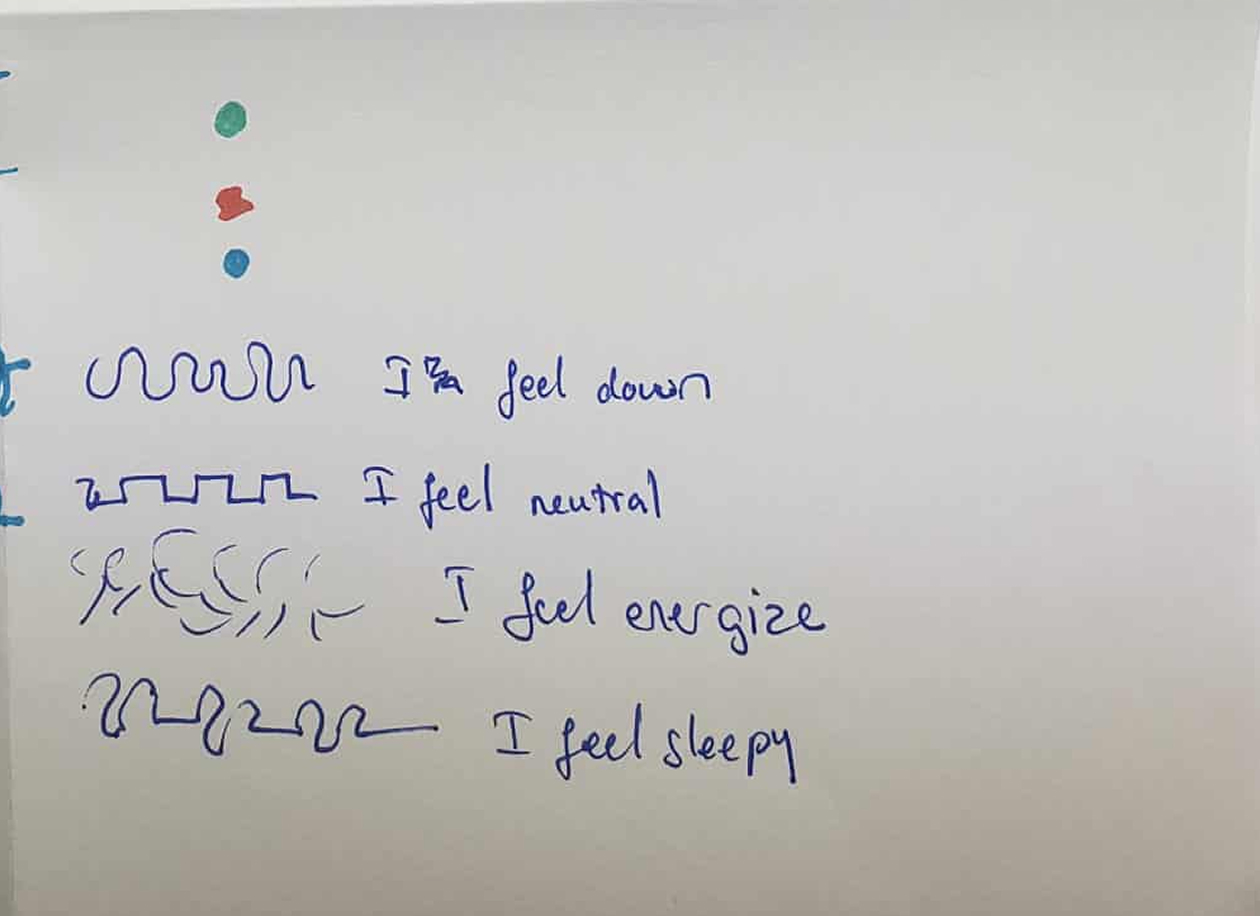 I feel down
I feel neutral
I feel energize
I feel sleepy